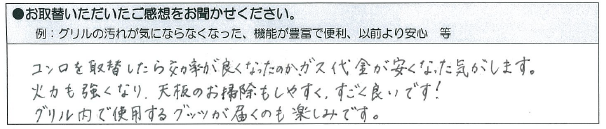 ●お取替いただいたご感想をお聞かせください。
例：グリルの汚れが気にならなくなった、機能が豊富で便利、以前より安心　等
コンロを取替したら効率が良くなったのか、ガス代金が安くなった気がします。
火力も強くなり、天板のお掃除もしやすく、すごく良いです！
グリル内で使用するグッツが届くのも楽しみです。